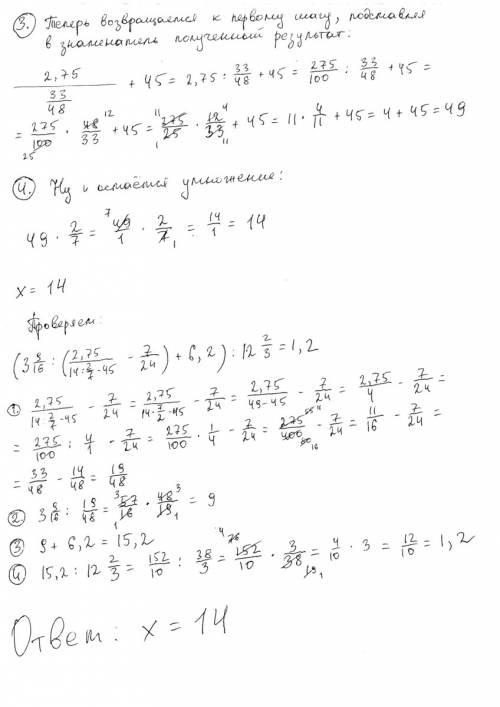 3. Теперь возвращаемся к первому шагу, подставляя
в знаменатель полученный результат:
2,75 / (33/48) + 45 = 2,75 : 33/48 + 45 = 275/100 : 33/48 + 45 =
= 275/100 25 · 48/33 12 + 45 = 11 275/25 1 · 12/33 4 11 + 45 = 11 · 4/11 + 45 = 4 + 45 = 49
4. Ну и остаётся умножение:
49 · 2/7 = 7 49/1 · 2/7 1 = 14/1 = 14
x = 14
Проверяем:
(3 9/16 : (2,75/(14·7/2-45) - 7/24) + 6,2) : 12 2/3 = 1,2
1. 2,75/(14:2/7-45) - 7/24 = 2,75/(14·7/2-45) - 7/24 = 2,75/(49-45) - 7/24 = 2,75/4 - 7/24 =
= 275/100 : 4/1 - 7/24 = 275/100 · 1/4 - 7/24 = 275/400 55 11 80 16 - 7/24 = 11/16 - 7/24 =
= 33/48 - 14/48 = 19/48
2. 3 9/16 : 19/48 = 3 57/16 1 · 48/19 3 1 = 9
3. 9 + 6,2 = 15,2
4. 15,2 : 12 2/3 = 152/10 : 38/3 = 4 76 152/10 · 3/38 19 1 = 4/10 · 3 = 12/10 = 1,2
Ответ: x = 14